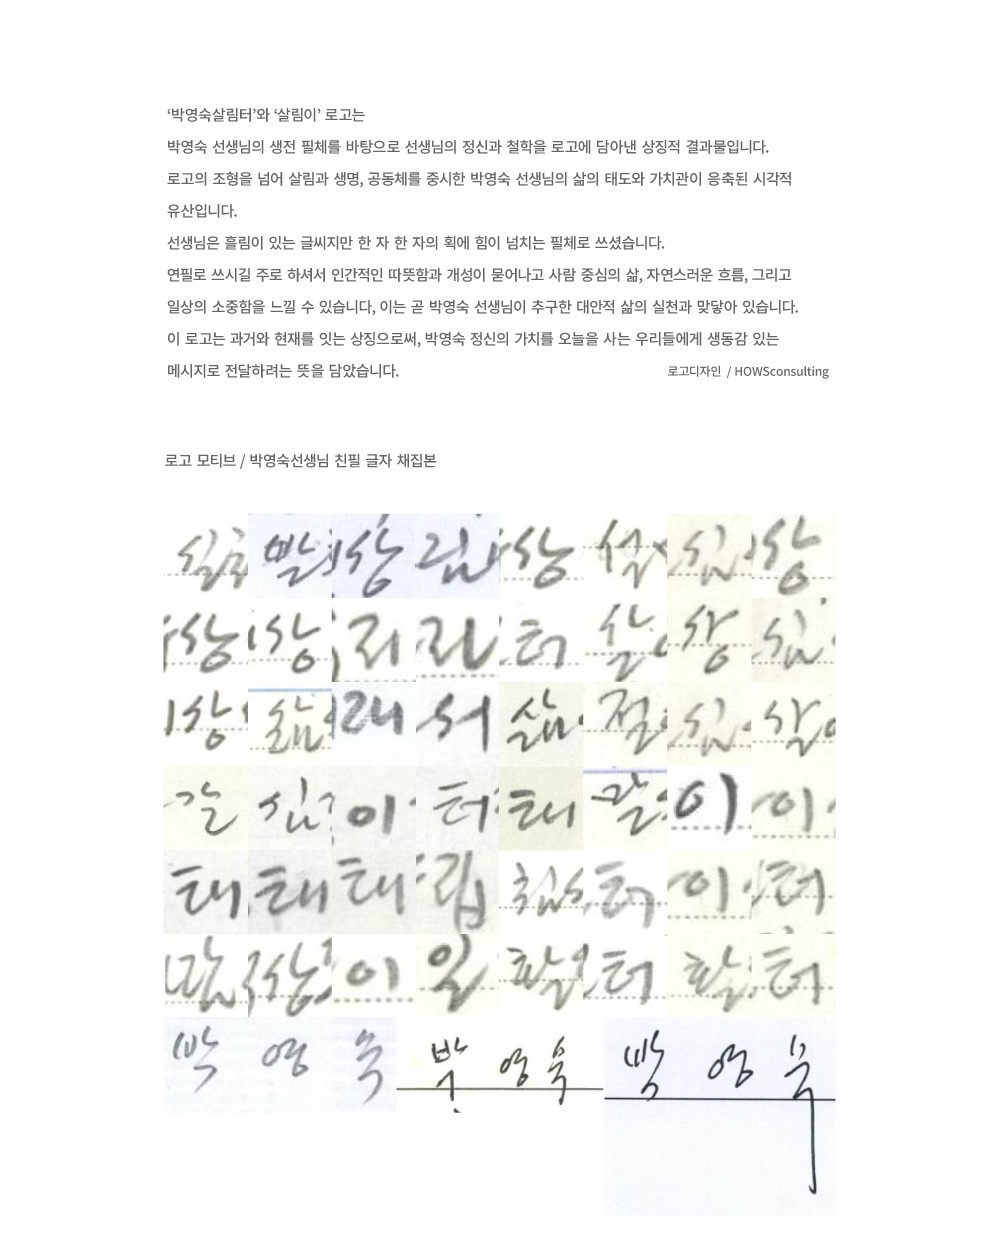 ‘박영숙살림터’와 ‘살림이’ 로고는
박영숙 선생님의 생전 필체를 바탕으로 선생님의 정신과 철학을 로고에 담아낸 상징적 결과물입니다.
로고의 조형을 넘어 살림과 생명, 공동체를 중시한 박영숙 선생님의 삶의 태도와 가치관이 응축된 시각적
유산입니다.
선생님은 흘림이 있는 글씨지만 한 자 한 자의 획에 힘이 넘치는 필체로 쓰셨습니다.
연필로 쓰시길 주로 하셔서 인간적인 따뜻함과 개성이 묻어나고 사람 중심의 삶, 자연스러운 흐름, 그리고
일상의 소중함을 느낄 수 있습니다, 이는 곧 박영숙 선생님이 추구한 대안적 삶의 실천과 맞닿아 있습니다.
이 로고는 과거와 현재를 잇는 상징으로써, 박영숙 정신의 가치를 오늘을 사는 우리들에게 생동감 있는
메시지로 전달하려는 뜻을 담았습니다. 로고디자인 / HOWSconsulting
로고 모티브 / 박영숙선생님 친필 글자 채집본
상 림 상 상
상 상 리 터 상
상 래 서 삶
이 터 태 이 이
태 태 태 립 터 이 터
상 이 일 활 터 활 터
박 영 숙 박 영 숙 박 영 숙